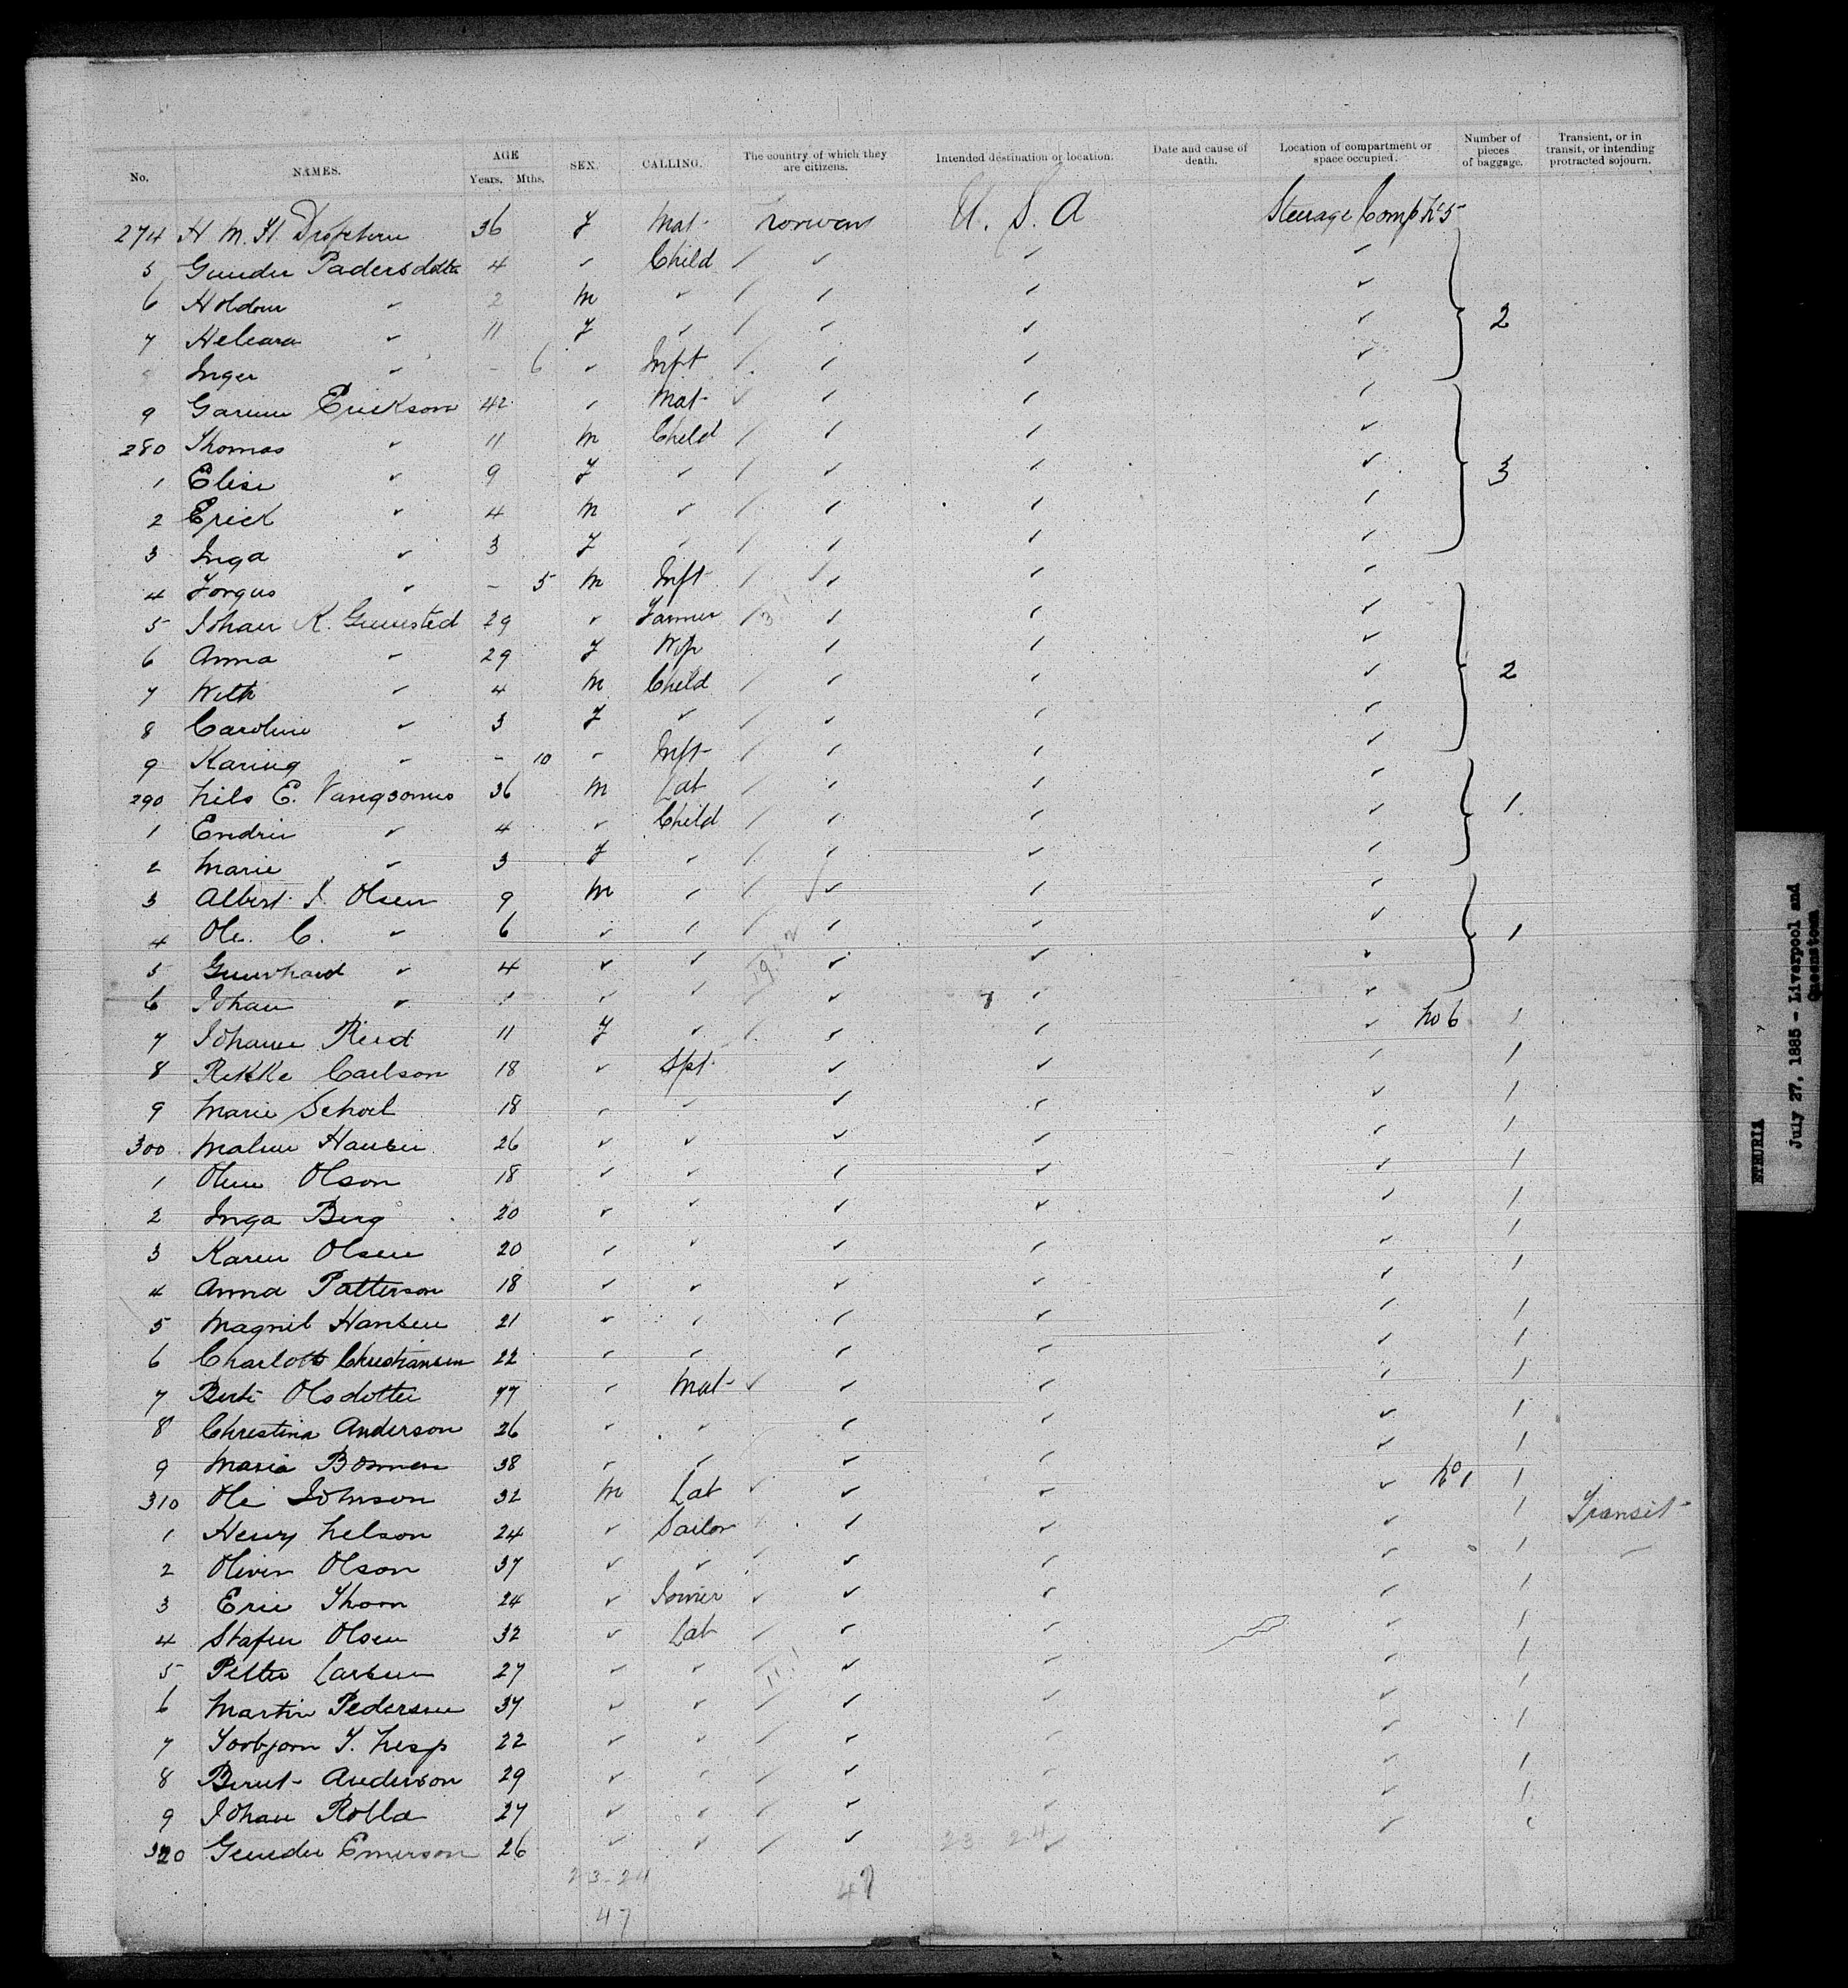 No. NAMES. AGE Years. Mths. SEX. CALLING. The country of which they are citizens. Intended destination or location. Date and cause of death. Location of compartment or space occupied. Number of pieces of baggage. Transient, or in transit, or intending protracted sojourn.
274 H M. H. 36 F Mat- U. S. A Steerage Comp No 5
5 Gunder Padersdotta 4 ✓ Child
6 Holdour ✓ 2 M ✓
7 Heleara ✓ 11 F ✓ 2
8 Inger ✓ - 6 ✓ Inft
9 Garine Erickson 42 ✓ Mat-
280 Thomas ✓ 11 M Child
1 Elise ✓ 9 F ✓ 3
2 Erick ✓ 4 M ✓
3 Inga ✓ 3 F ✓
4 Forgus ✓ - 5 M Inft
5 Johan K. Gunested 29 ✓ Farmer
6 Anna ✓ 29 F Wife
7 With ✓ 4 M Child 2
8 Caroline ✓ 3 F ✓
9 Karing ✓ - 10 ✓ Inft
290 Nils E. Vangsonus 36 M Lab 1
1 Endrie ✓ 4 ✓ Child
2 Marie ✓ 3 F ✓
3 Albert J. Olsen 9 M ✓
4 Ole. C. ✓ 6 ✓ ✓ 1
5 Gunhard ✓ 4 ✓ ✓
6 Johan ✓ 1 ✓ ✓
7 Johanne Reed 11 F ✓ No 6 1
8 Rekke Carlson 18 ✓ Spt 1
9 Marie Schoel 18 ✓ ✓ 1
300 Malene Hansen 26 ✓ ✓ 1
1 Oline Olson 18 ✓ ✓ 1
2 Inga Berg 20 ✓ ✓ 1
3 Karen Olsen 20 ✓ ✓ 1
4 Anna Patterson 18 ✓ ✓ 1
5 Magnil Hansen 21 ✓ ✓ 1
6 Charlott Christiansen 22 ✓ ✓ 1
7 Berte Olsdotter 77 ✓ Mat- 1
8 Christina Anderson 26 ✓ ✓ 1
9 Maria Bomen 38 ✓ ✓ 1
310 Ole Johnson 32 M Lab No 1 1
1 Henry Nelson 24 ✓ Sailor 1 Transit
2 Oliver Olson 37 ✓ ✓ 1
3 Eric Thorn 24 ✓ Joiner 1
4 Stafen Olsen 32 ✓ Lab 1
5 Petter Larsen 27 ✓ ✓ 1
6 Martin Pedersen 37 ✓ ✓ 1
7 Torbjorn T. Nesp 22 ✓ ✓ 1
8 Bernt Anderson 29 ✓ ✓ 1
9 Johan Rolla 27 ✓ ✓ 1
320 Gunder Emerson 26 ✓ ✓
23 24
23-24
47
47
ETRURIA
July 27, 1885 - Liverpool and Queenstown